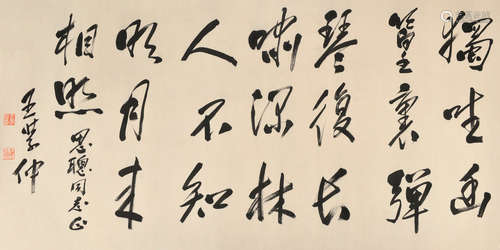 獨坐幽
篁裏彈
琴復長
嘯深林
人不知
明月來
相照
思聰同志正
王學仲